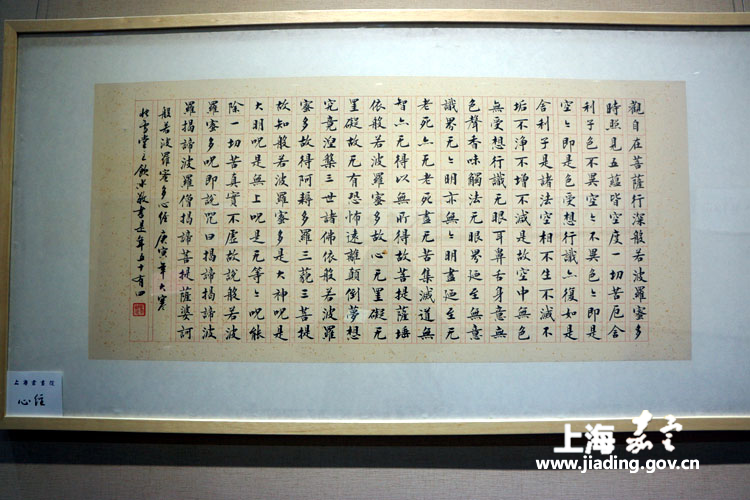 觀自在菩薩行深般若波羅蜜多
時照見五蘊皆空度一切苦厄舍
利子色不異空〻不異色〻即是
空〻即是色受想行識亦復如是
舍利子是諸法空相不生不滅不
垢不淨不增不減是故空中無色
無受想行識无眼耳鼻舌身意無
色聲香味觸法无眼界迺至無意
識界无〻明亦無〻明盡迺至无
老死亦无老死盡无苦集滅道無
智亦无得以無所得故菩提薩埵
依般若波羅蜜多故心无罣礙无
罣礙故无有恐怖遠離顛倒夢想
究竟涅槃三世諸佛依般若波羅
蜜多故得阿耨多羅三藐三菩提
故知般若波羅蜜多是大神呪是
大明呪是無上呪是无等〻呪能
除一切苦真實不虛故說般若波
羅蜜多呪即說咒曰揭諦揭諦波
羅揭諦波羅僧揭諦菩提薩婆訶
般若波羅蜜多心經 庚寅年大寒
敬書是年五十有四
心經
上海嘉定
www.jiading.gov.cn